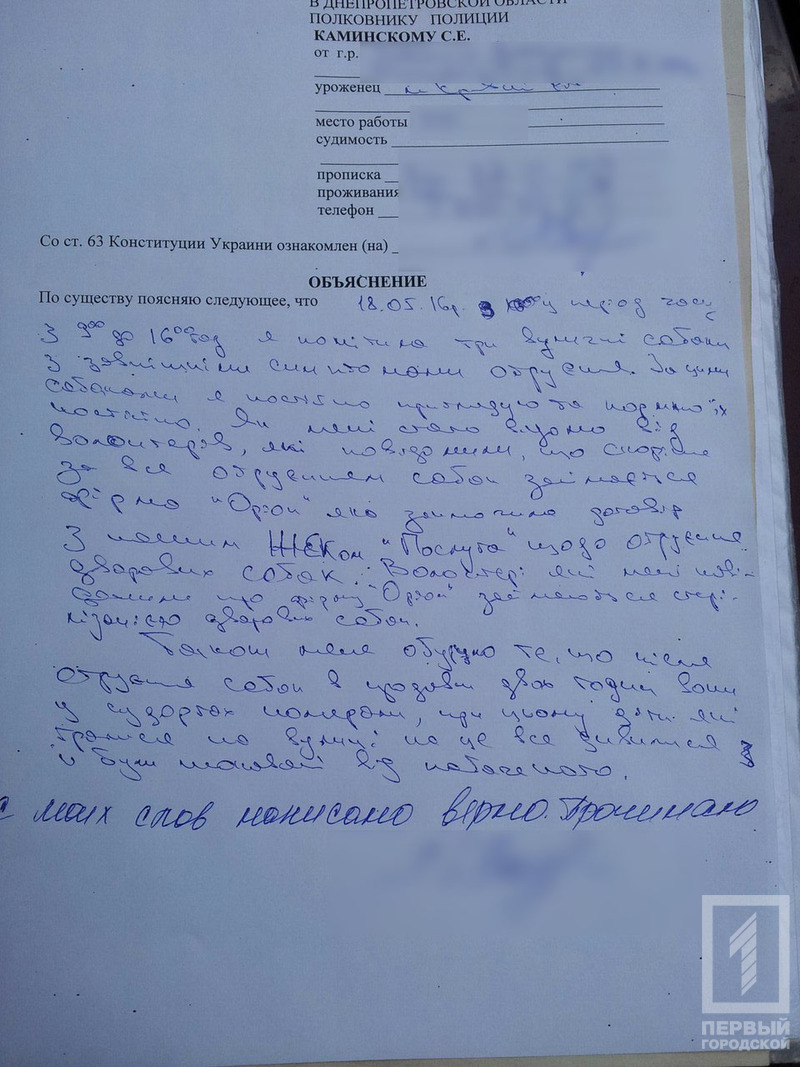 В ДНЕПРОПЕТРОВСКОЙ ОБЛАСТИ
ПОЛКОВНИКУ ПОЛИЦИИ
КАМИНСКОМУ С.Е.
от г.р.
уроженец
место работы
судимость
прописка
проживания
телефон
Со ст. 63 Конституции Украини ознакомлен (на)
ОБЪЯСНЕНИЕ
По существу поясняю следующее, что 18.05.16р. у період часу
з 9⁰⁰ до 16⁰⁰ год я помітила три вуличні собаки
з зовнішніми симптомами отруєння. За цими
собаками я постійно приглядую та кормлю їх
постійно. Як мені стало відомо від
волонтерів, які повідомили, що скоріше
за все отруєнням собак займається
фірма "Оріон" яка заключила договір
з нашим ЖЕКом "Послуга" щодо отруєння
дворових собак. Волонтері які мені пові-
домили що фірма "Оріон" займається стері-
лізацією дворових собак.
Також мене обурило те, що після
отруєння собак в продовж двох годин вони
у судоргах помирали, при цьому діти які
грались на вулиці на це все дивилися
і були шоковані від побаченого.
с моих слов написано верно. Прочитано
ПЕРВЫЙ
ГОРОДСКОЙ